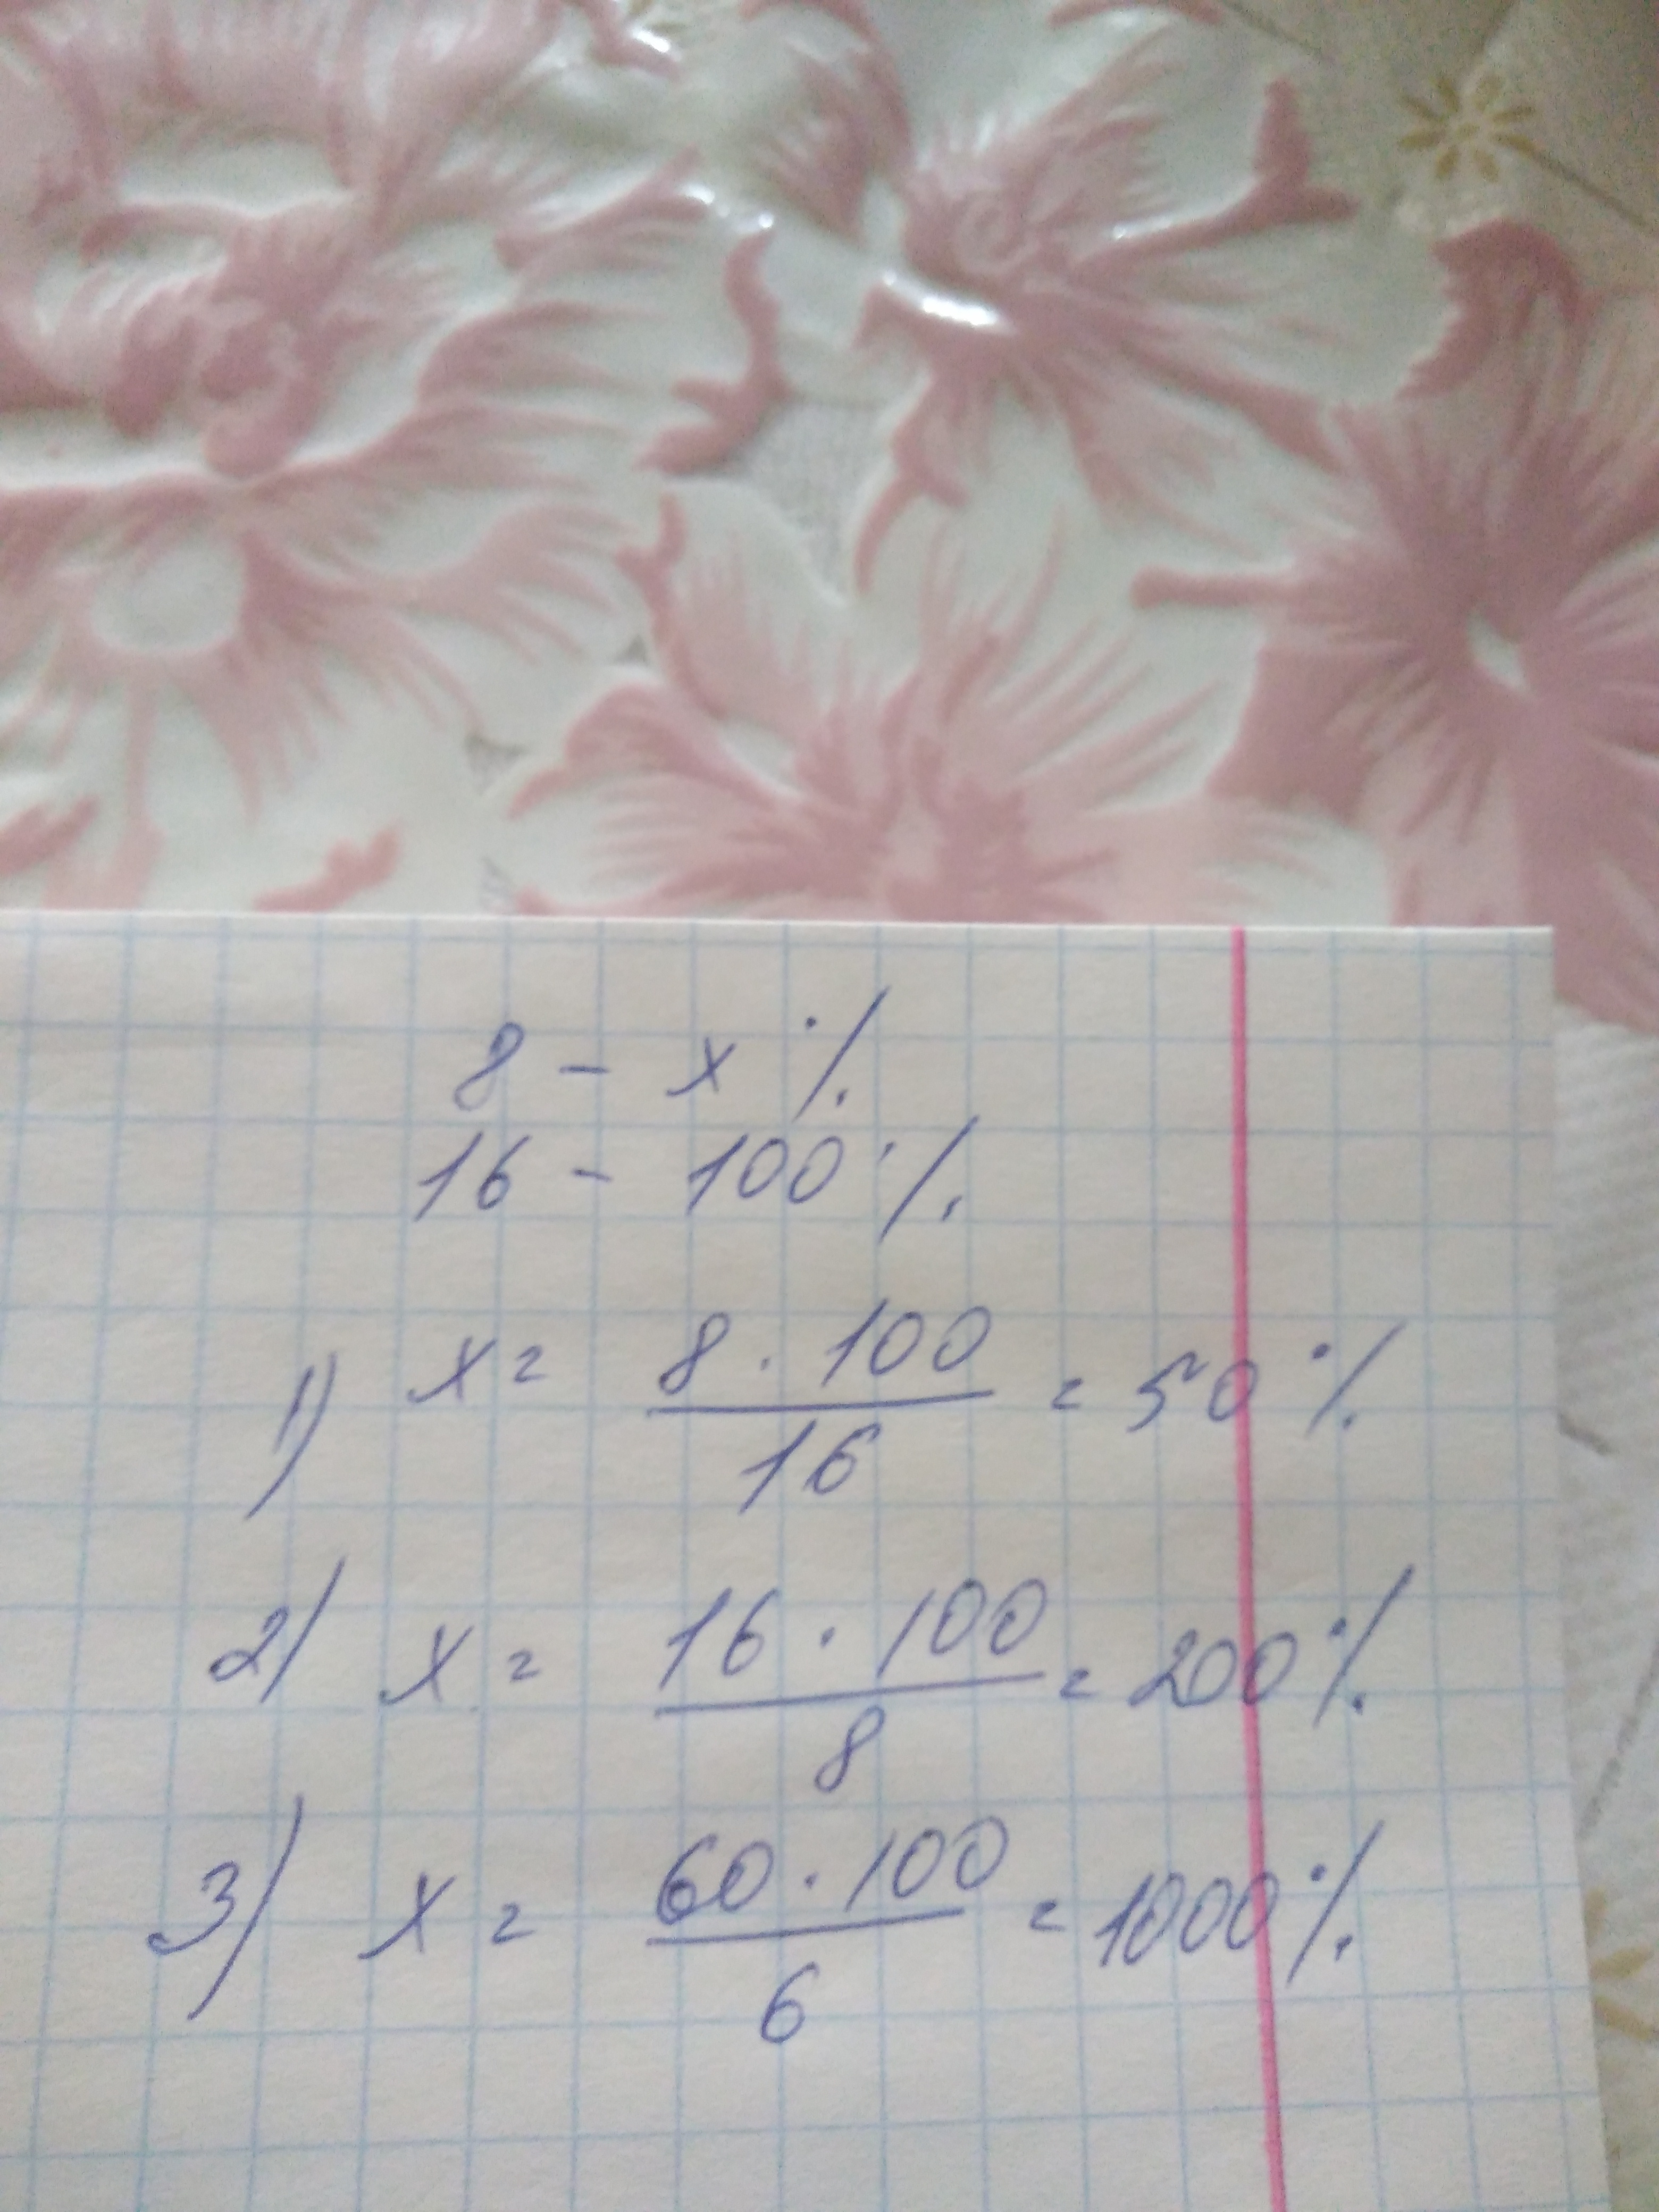 8 - x %
16 - 100 %
1) x = 8 · 100 / 16 = 50 %
2) x = 16 · 100 / 8 = 200 %
3) x = 60 · 100 / 6 = 1000 %